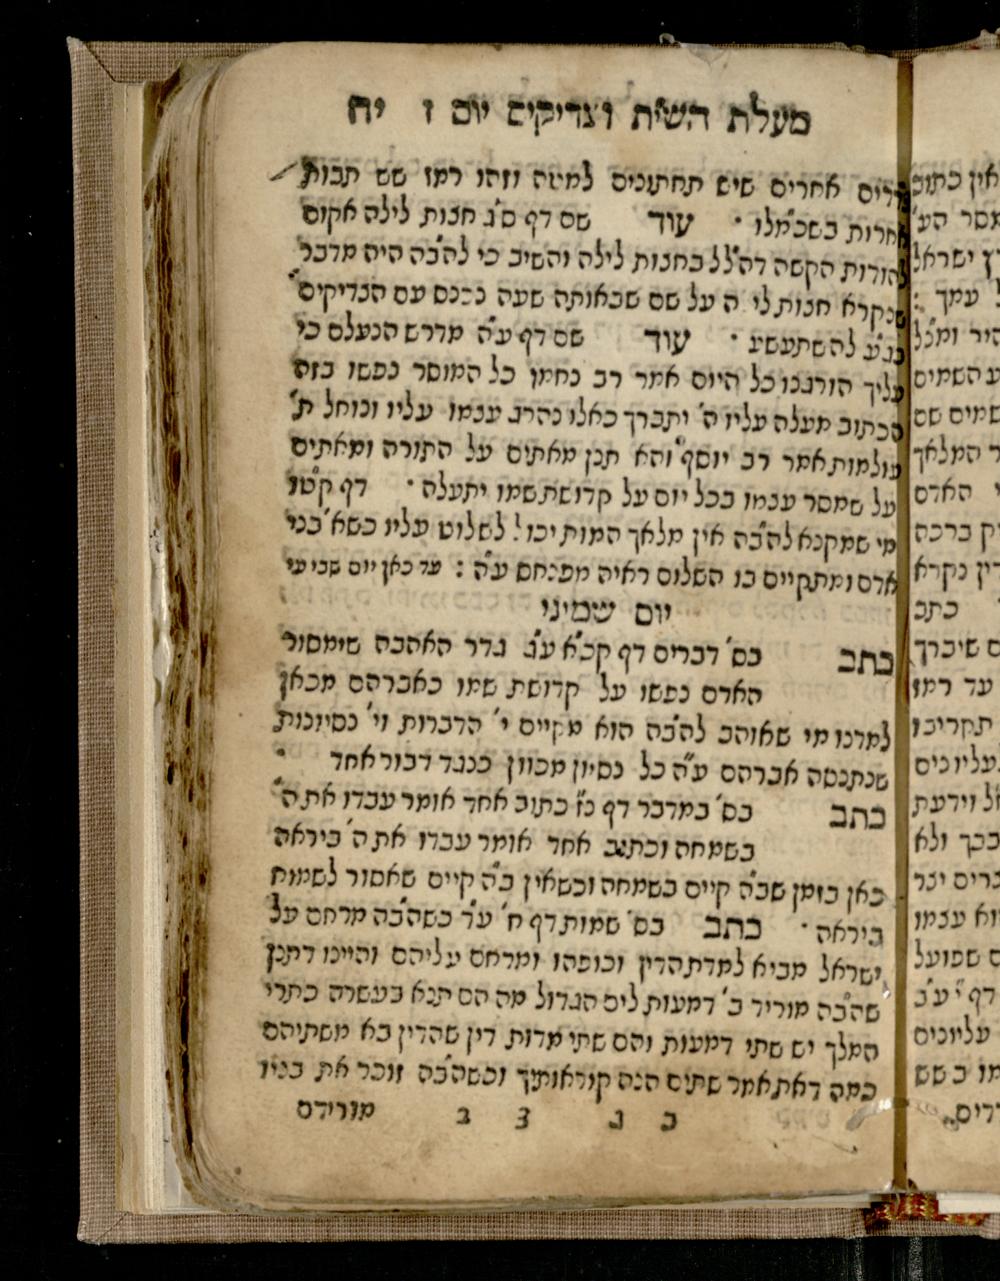 מעלת השי"ת וצדיקים יום ז יח
סדרים אחרים שיש תחתונים למטה וזהו רמז שש תבות
אחרות בשכמלו · עוד שם דף ס"ג חצות לילה אקום
להודות הקשה דה"לל בחצות לילה והשיב כי להב"ה היה מדבר
שנקרא חצות לי' ה על שם שבאותה שעה נכנס עם הצדיקים
בג"ע להשתעשע · עוד שם דף ע"ה מדרש הנעלם כי
עליך הורגנו כל היום אמר רב נחמן כל המוסר נפשו בזה
הכתוב מעלה עליו ה' יתברך כאלו נהרג עצמו עליו ונוחל ת'
עולמות אמר רב יוסף והא תנן מאתים על התורה ומאתים
על שמסר עצמו בכל יום על קדושת שמו יתעלה · דף קט"ו
מי שמקנא להב"ה אין מלאך המות יכול לשלוט עליו כשא' בני
אדם ומתקיים בו השלום ראיה מפנחס ע"ה : עד כאן יום שביעי
יום שמיני
כתב בס' דברים דף קכ"א ע"ג גדר האהבה שימסור
האדם נפשו על קדושת שמו כאברהם מכאן
למדנו מי שאוהב להב"ה הוא מקיים י' הדברות וי' נסיונות
שנתנסה אברהם ע"ה כל נסיון מכוון כנגד דבור אחד ·
כתב בס' במדבר דף נ"ו כתוב אחד אומר עבדו את ה'
בשמחה וכתוב אחד אומר עבדו את ה' ביראה
כאן בזמן שב"ה קיים בשמחה וכשאין ב"ה קיים שאסור לשמוח
ביראה · כתב בס' שמות דף ח' ע"ד כשהב"ה מרחם על
ישראל מביא למדת הדין וכופהו ומרחם עליהם והיינו דתנן
שהב"ה מוריד ב' דמעות לים הגדול מה הם תנא בעשרה כתרי
המלך יש שתי דמעות והם שתי מדות דין שהדין בא משתיהם
כמה דאת אמר שתים הנה קוראותיך וכשהב"ה זוכר את בניו
כ ג צ ב מורידם